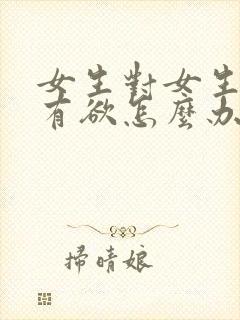 女生對女生
有欲怎麼办
掃晴娘